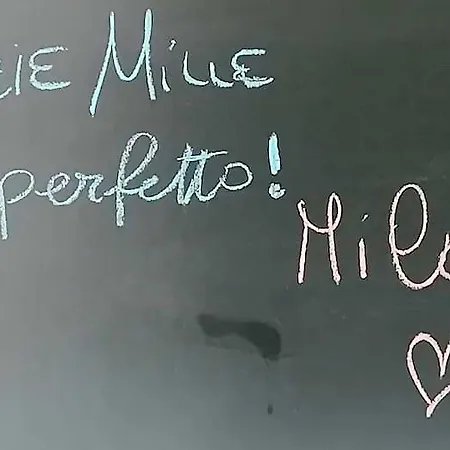 ZIE MILLE
perfetto!
Mila